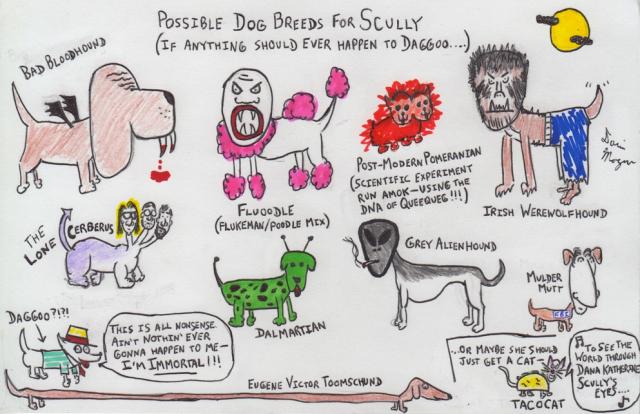 POSSIBLE DOG BREEDS FOR SCULLY
(IF ANYTHING SHOULD EVER HAPPEN TO DAGGOO...)
BAD BLOODHOUND
FLUOODLE
(FLUKEMAN/POODLE MIX)
POST-MODERN POMERANIAN
(SCIENTIFIC EXPERIMENT
RUN AMOK-USING THE
DNA OF QUEEQUEG!!!)
IRISH WEREWOLFHOUND
THE
LONE
CERBERUS
DALMARTIAN
GREY ALIENHOUND
MULDER
MUTT
FBI
DAGGOO?!?!
THIS IS ALL NONSENSE.
AIN'T NOTHIN' EVER
GONNA HAPPEN TO ME—
I'M IMMORTAL!!!
EUGENE VICTOR TOOMSCHUND
...OR MAYBE SHE SHOULD
JUST GET A CAT—
TACOCAT
TO SEE THE
WORLD THROUGH
DANA KATHERINE
SCULLY'S
EYES....